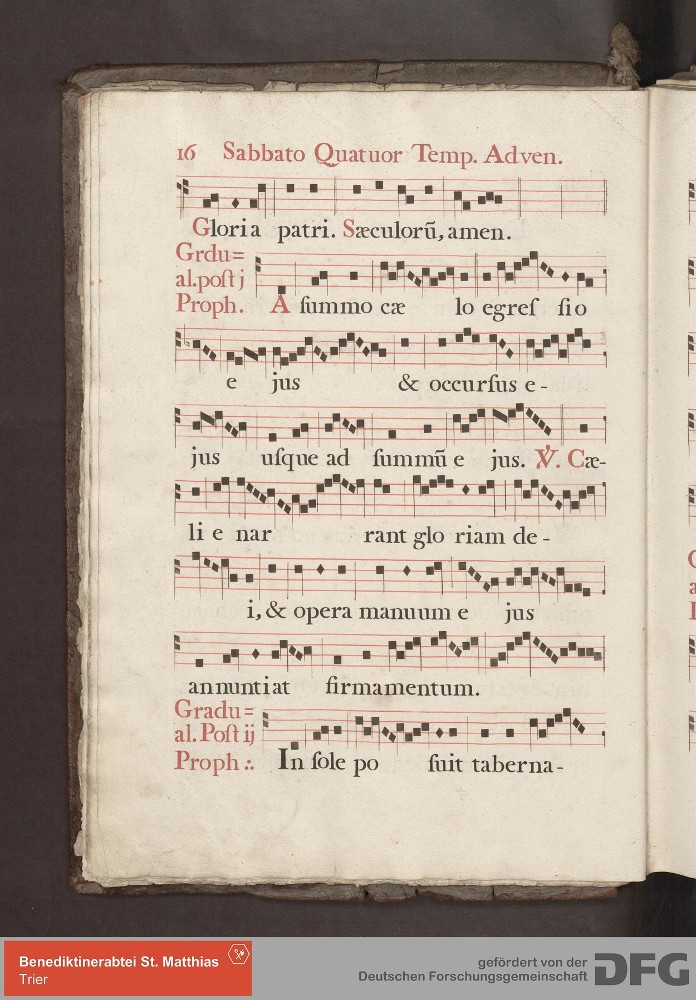 16 Sabbato Quatuor Temp. Adven.
Gloria patri. Sæculorũ, amen.
Grdu=
al. poſt j
Proph. A ſummo cæ lo egreſ ſio
e jus & occurſus e -
jus uſque ad ſummũ e jus. ℣. Cæ-
li e nar rant glo riam de -
i, & opera manuum e jus
annuntiat firmamentum.
Gradu=
al. Poſt ij
Proph ∴ In ſole po ſuit taberna -
Benediktinerabtei St. Matthias
Trier
gefördert von der
Deutschen Forschungsgemeinschaft
DFG